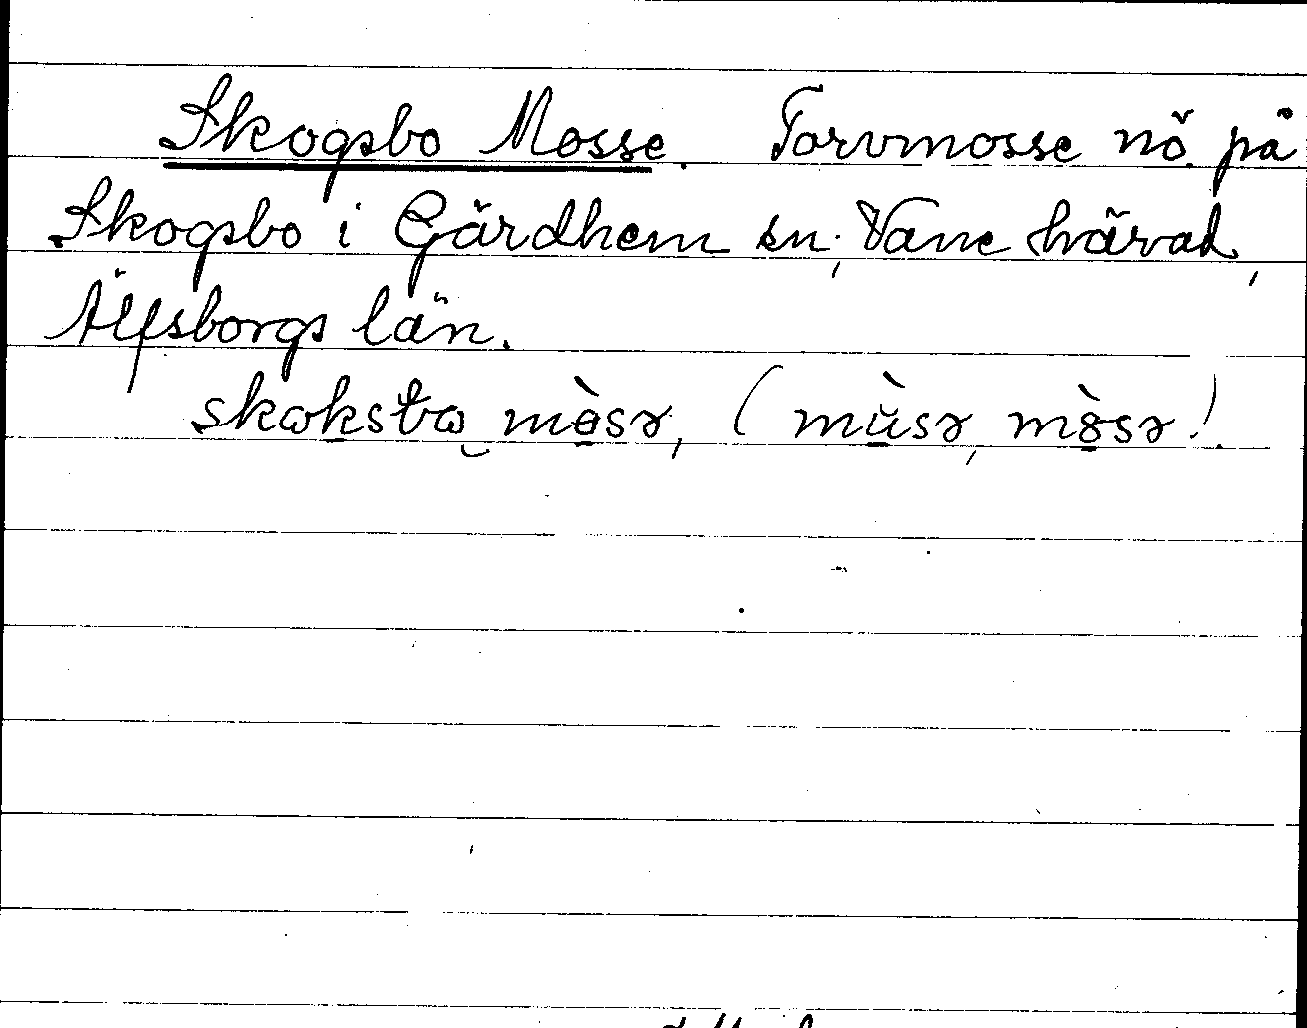 Skogsbo Mosse. Torvmosse nö. på
Skogsbo i Gärdhem sn, Väne härad,
Älfsborgs län.
skoksbo mòsə, (mùsə, mòsə).